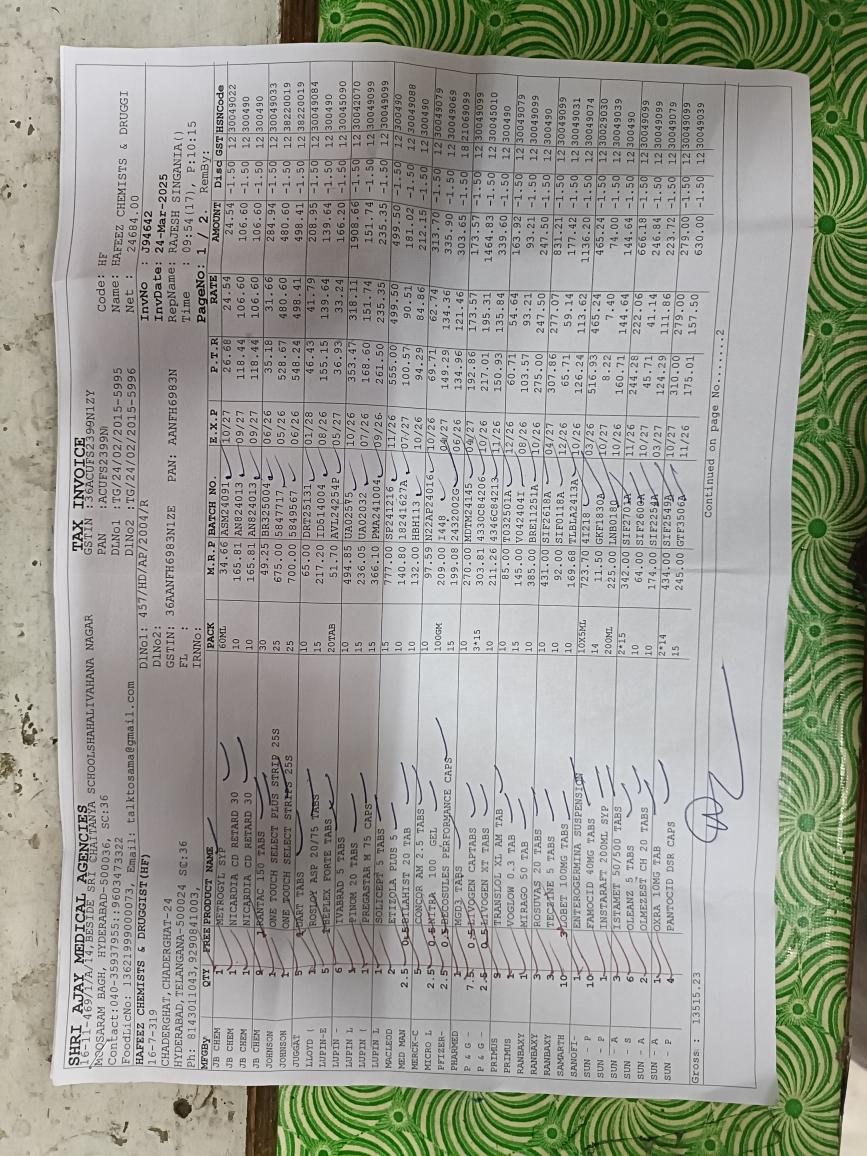 SHRI AJAY MEDICAL AGENCIES TAX INVOICE
16-11-469/1/A/14,BESIDE SRI CHAITANYA SCHOOLSHAHALIVAHANA NAGAR GSTIN :36ACUFS2399N1ZY Code: HF
MOOSARAM BAGH, HYDERABAD-500036, SC:36 PAN :ACUFS2399N Name: HAFEEZ CHEMISTS & DRUGGI
Contact:040-35937955::9603473322 DLNo1 :TG/24/02/2015-5995 Net : 24684.00
FoodLicNo: 13621999000073, Email: talktosama@gmail.com DLNo2 :TG/24/02/2015-5996
HAFEEZ CHEMISTS & DRUGGIST(HF) DlNo1: 457/HD/AP/2004/R InvNo : J94642
16-7-319 DlNo2: InvDate: 24-Mar-2025
CHADERGHAT,CHADERGHAT-24 GSTIN: 36AANFH6983N1ZE PAN: AANFH6983N RepName: RAJESH SINGANIA()
HYDERABAD,TELANGANA-500024 SC:36 FL : Time : 09:54(17), P:10:15
Ph: 8143011043,9290841003, IRNNo: PageNo: 1 / 2. RemBy:
MFGBy QTY FREE PRODUCT NAME PACK M.R.P BATCH NO. E.X.P P.T.R RATE AMOUNT Disc GST HSNCode
JB CHEM 1 METROGYL SYP 60ML 34.66 ASM24091 10/27 26.68 24.54 24.54 -1.50 12 30049022
JB CHEM 1 NICARDIA CD RETARD 30 10 165.81 AN824013 09/27 118.44 106.60 106.60 -1.50 12 300490
JB CHEM 1 NICARDIA CD RETARD 30 10 165.81 AN824013 09/27 118.44 106.60 106.60 -1.50 12 300490
JB CHEM 9 RANTAC 150 TABS 30 49.25 BB325004 06/26 35.18 31.66 284.94 -1.50 12 30049033
JOHNSON 1 ONE TOUCH SELECT PLUS STRIP 25S 25 675.00 5847717 05/26 528.67 480.60 480.60 -1.50 12 38220019
JOHNSON 1 ONE TOUCH SELECT STRIPS 25S 25 700.00 5849567 06/26 548.24 498.41 498.41 -1.50 12 38220019
JUGGAT 5 DART TABS 10 65.00 DRT25131 01/28 46.43 41.79 208.95 -1.50 12 30049084
LLOYD ( 1 ROSLOY ASP 20/75 TABS 15 217.20 ID514004 08/26 155.15 139.64 139.64 -1.50 12 300490
LUPIN-E 5 BEPLEX FORTE TABS 20TAB 51.70 AVL24254P 05/27 36.93 33.24 166.20 -1.50 12 30045090
LUPIN - 6 IVABRAD 5 TABS 10 494.85 UA02575 10/26 353.47 318.11 1908.66 -1.50 12 30042070
LUPIN L 1 PINOM 20 TABS 15 236.05 UA02032 07/26 168.60 151.74 151.74 -1.50 12 30049099
LUPIN L 1 PREGASTAR M 75 CAPS 15 366.10 PMA241004 09/26 261.50 235.35 235.35 -1.50 12 30049099
LUPIN L 1 SOLICEPT 5 TABS 15 777.00 SP241216 11/26 555.00 499.50 499.50 -1.50 12 300490
MACLEOD 2 ETIZOLA PLUS 5 10 140.80 18241627A 07/27 100.57 90.51 181.02 -1.50 12 30049088
MED MAN 2.5 0.5 FILAHIST 20 TAB 10 132.00 HBH113 10/26 94.29 84.86 212.15 -1.50 12 300490
MERCK-C 5 CONCOR AM 2.5 TABS 10 97.59 N22AP24016 10/26 69.71 62.74 313.70 -1.50 12 30049079
MICRO L 2.5 0.5 MITRA 100 GEL 100GM 209.00 I448 04/27 149.29 134.36 335.90 -1.50 12 30049069
PFIZER- 2.5 0.5 BECOSULES PERFORMANCE CAPS 15 199.08 2432002G 06/26 134.96 121.46 303.65 -1.50 18 21069099
PHARMED 1 MGD3 TABS 10 270.00 MDTM24145 04/27 192.86 173.57 173.57 -1.50 12 30049099
P & G - 7.5 0.5 LIVOGEN CAPTABS 3*15 303.81 4330C84206 10/26 217.01 195.31 1464.83 -1.50 12 30045010
P & G - 2.5 0.5 LIVOGEN XT TABS 10 211.26 4346C84213 11/26 150.93 135.84 339.60 -1.50 12 300490
PRIMUS 3 TRANSLOL XL AM TAB 10 85.00 TO32501A 12/26 60.71 54.64 163.92 -1.50 12 30049079
PRIMUS 1 VOGLOW 0.3 TAB 15 145.00 VO42404I 08/26 103.57 93.21 93.21 -1.50 12 30049099
RANBAXY 1 MIRAGO 50 TAB 10 385.00 BRE11251A 10/26 275.00 247.50 247.50 -1.50 12 300490
RANBAXY 3 ROSUVAS 20 TABS 10 431.00 SIF2618A 04/27 307.86 277.07 831.21 -1.50 12 30049099
RANBAXY 3 TECZINE 5 TABS 10 92.00 SIF0118A 12/26 65.71 59.14 177.42 -1.50 12 30049031
SAMARTH 10 DOBET 100MG TABS 10 169.68 TLBLA2413A 10/26 126.24 113.62 1136.20 -1.50 12 30049074
SANOFI- 1 ENTEROGERMINA SUSPENSION 10X5ML 723.70 4I218 03/26 516.93 465.24 465.24 -1.50 12 30029030
SUN - P 10 FAMOCID 40MG TABS 14 11.50 GKF1830A 10/27 8.22 7.40 74.00 -1.50 12 30049039
SUN - P 1 INSTARAFT 200ML SYP 200ML 225.00 LNB0180 10/26 160.71 144.64 144.64 -1.50 12 300490
SUN - A 3 ISTAMET 50/500 TABS 2*15 342.00 SIF2701A 11/26 244.28 222.06 666.18 -1.50 12 30049099
SUN - S 6 OLEANZ 5 TABS 10 64.00 SIF2600A 10/27 45.71 41.14 246.84 -1.50 12 30049099
SUN - A 2 OLMEZEST CH 20 TABS 10 174.00 SIF2252A 03/27 124.29 111.86 223.72 -1.50 12 30049079
SUN - A 1 OXRA 10MG TAB 2*14 434.00 SIF2549A 10/27 310.00 279.00 279.00 -1.50 12 30049099
SUN - P 4 PANTOCID DSR CAPS 15 245.00 GTF3506A 11/26 175.01 157.50 630.00 -1.50 12 30049039
Gross : 13515.23 Continued on page No........2